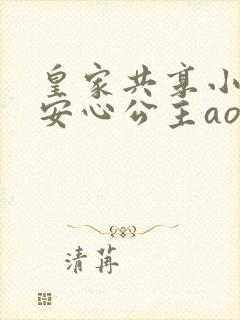 皇家共享小
安心公主ao
清苒